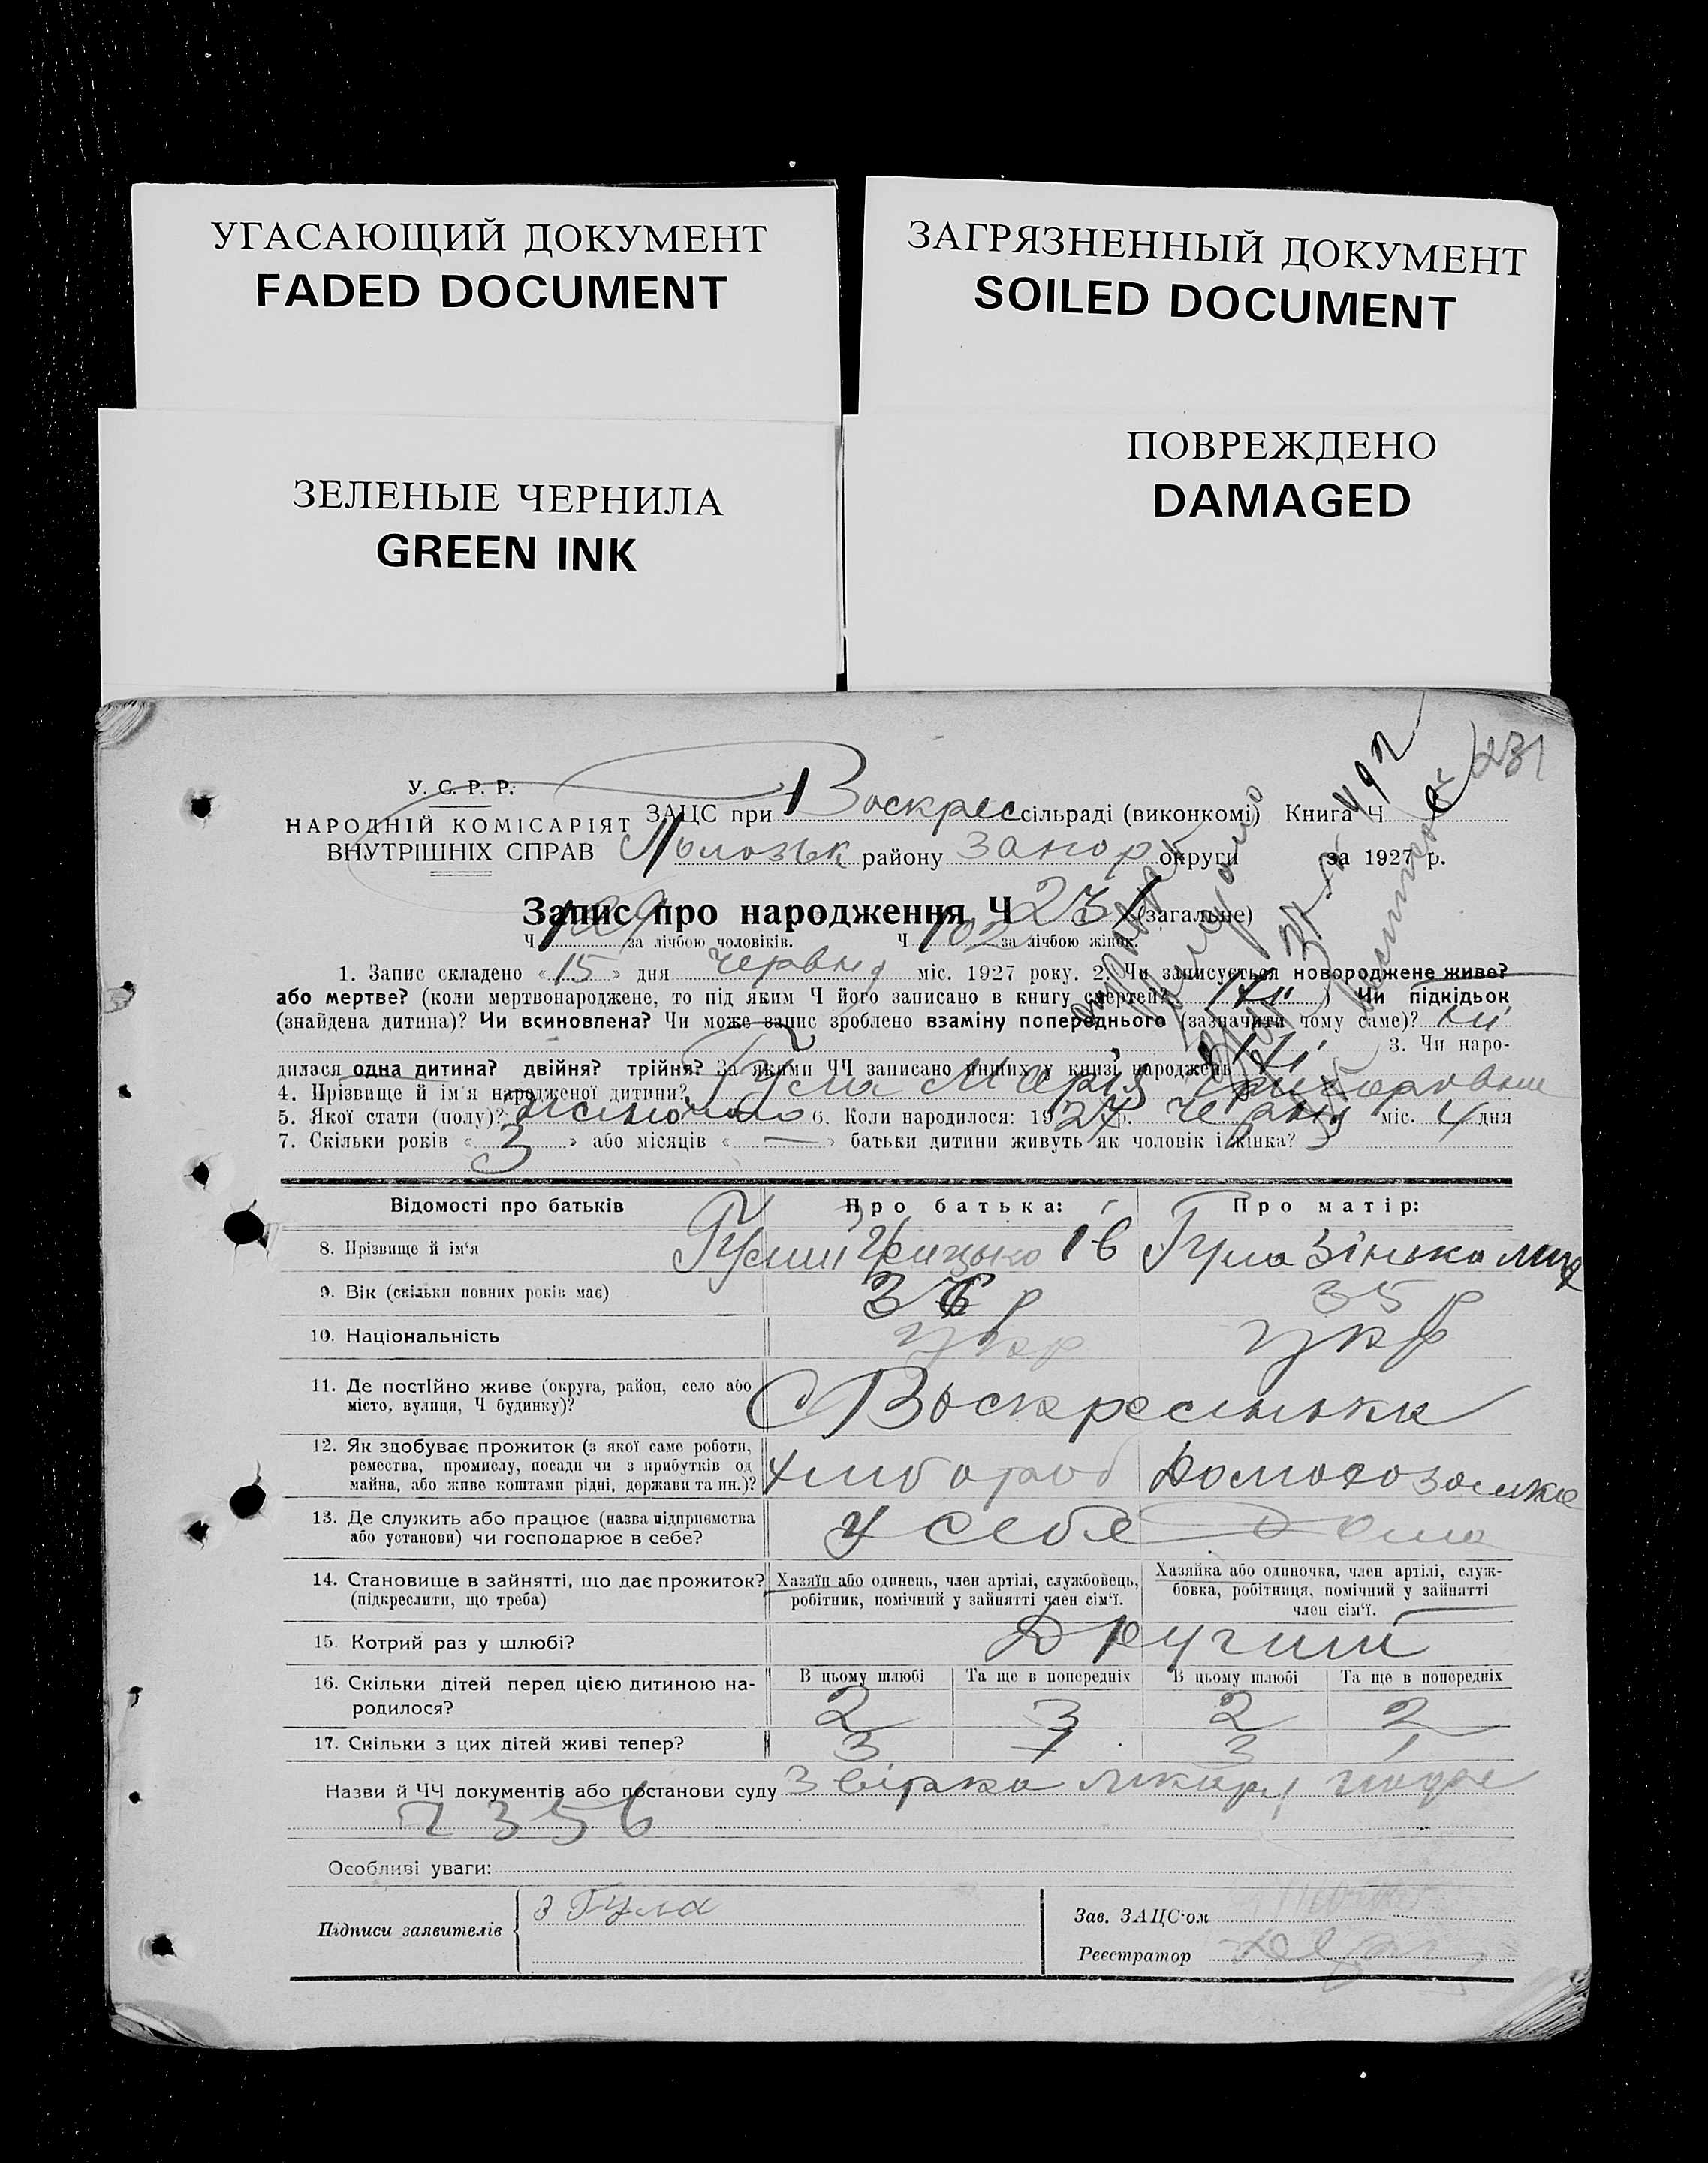 УГАСАЮЩИЙ ДОКУМЕНТ
FADED DOCUMENT
ЗАГРЯЗНЕННЫЙ ДОКУМЕНТ
SOILED DOCUMENT
ЗЕЛЕНЫЕ ЧЕРНИЛА
GREEN INK
ПОВРЕЖДЕНО
DAMAGED
231
У. С. Р. Р.
НАРОДНІЙ КОМІСАРІЯТ
ВНУТРІШНІХ СПРАВ
ЗАЦС при Воскрес сільраді (виконкомі) Книга Ч
району Запор округи за 1927 р.
Запис про народження Ч 231 (загальне)
Ч 129 за лічбою чоловіків. Ч 102 за лічбою жінок.
1. Запис складено « 15 » дня червня міс. 1927 року. 2. Чи записується новороджене живе?
або мертве? (коли мертвонароджене, то під яким Ч його записано в книгу смертей? Ні ) Чи підкідьок
(знайдена дитина)? Чи всиновлена? Чи може запис зроблено взаміну попереднього (зазначити чому саме)? Ні
3. Чи наро-
дилася одна дитина? двійня? трійня? За якими ЧЧ записано инших у книзі народжень Ні
4. Прізвище й ім'я народженої дитини? Гула Марія
5. Якої стати (полу)? жіночого 6. Коли народилося: 1927 р. червня міс. 4 дня
7. Скільки років « 3 » або місяців « — » батьки дитини живуть як чоловік і жінка?
Відомості про батьків Про батька: Про матір:
8. Прізвище й ім'я Грицько Ів Гула Зінька
9. Вік (скільки повних років має) 36 р 35 р
10. Національність укр укр
11. Де постійно живе (округа, район, село або
місто, вулиця, Ч будинку)? С Воскресенька
12. Як здобуває прожиток (з якої саме роботи,
ремества, промислу, посади чи з прибутків од
майна, або живе коштами рідні, держави та ин.)? хлібороб Домогозяйка
13. Де служить або працює (назва підприємства
або установи) чи господарює в себе? У себе Дома
14. Становище в зайнятті, що дає прожиток?
(підкреслити, що треба)
Хазяїн або одинець, член артілі, службовець,
робітник, помічний у зайнятті член сім'ї.
Хазяйка або одиночка, член артілі, служ-
бовка, робітниця, помічний у зайнятті
член сім'ї.
15. Котрий раз у шлюбі? Другий
16. Скільки дітей перед цією дитиною на-
родилося?
В цьому шлюбі Та ще в попередніх В цьому шлюбі Та ще в попередніх
2 3 2 2
17. Скільки з цих дітей живі тепер? 3 1 3 1
Назви й ЧЧ документів або постанови суду
7356
Особливі уваги:
Підписи заявителів
З Гула
Зав. ЗАЦС'ом
Реєстратор